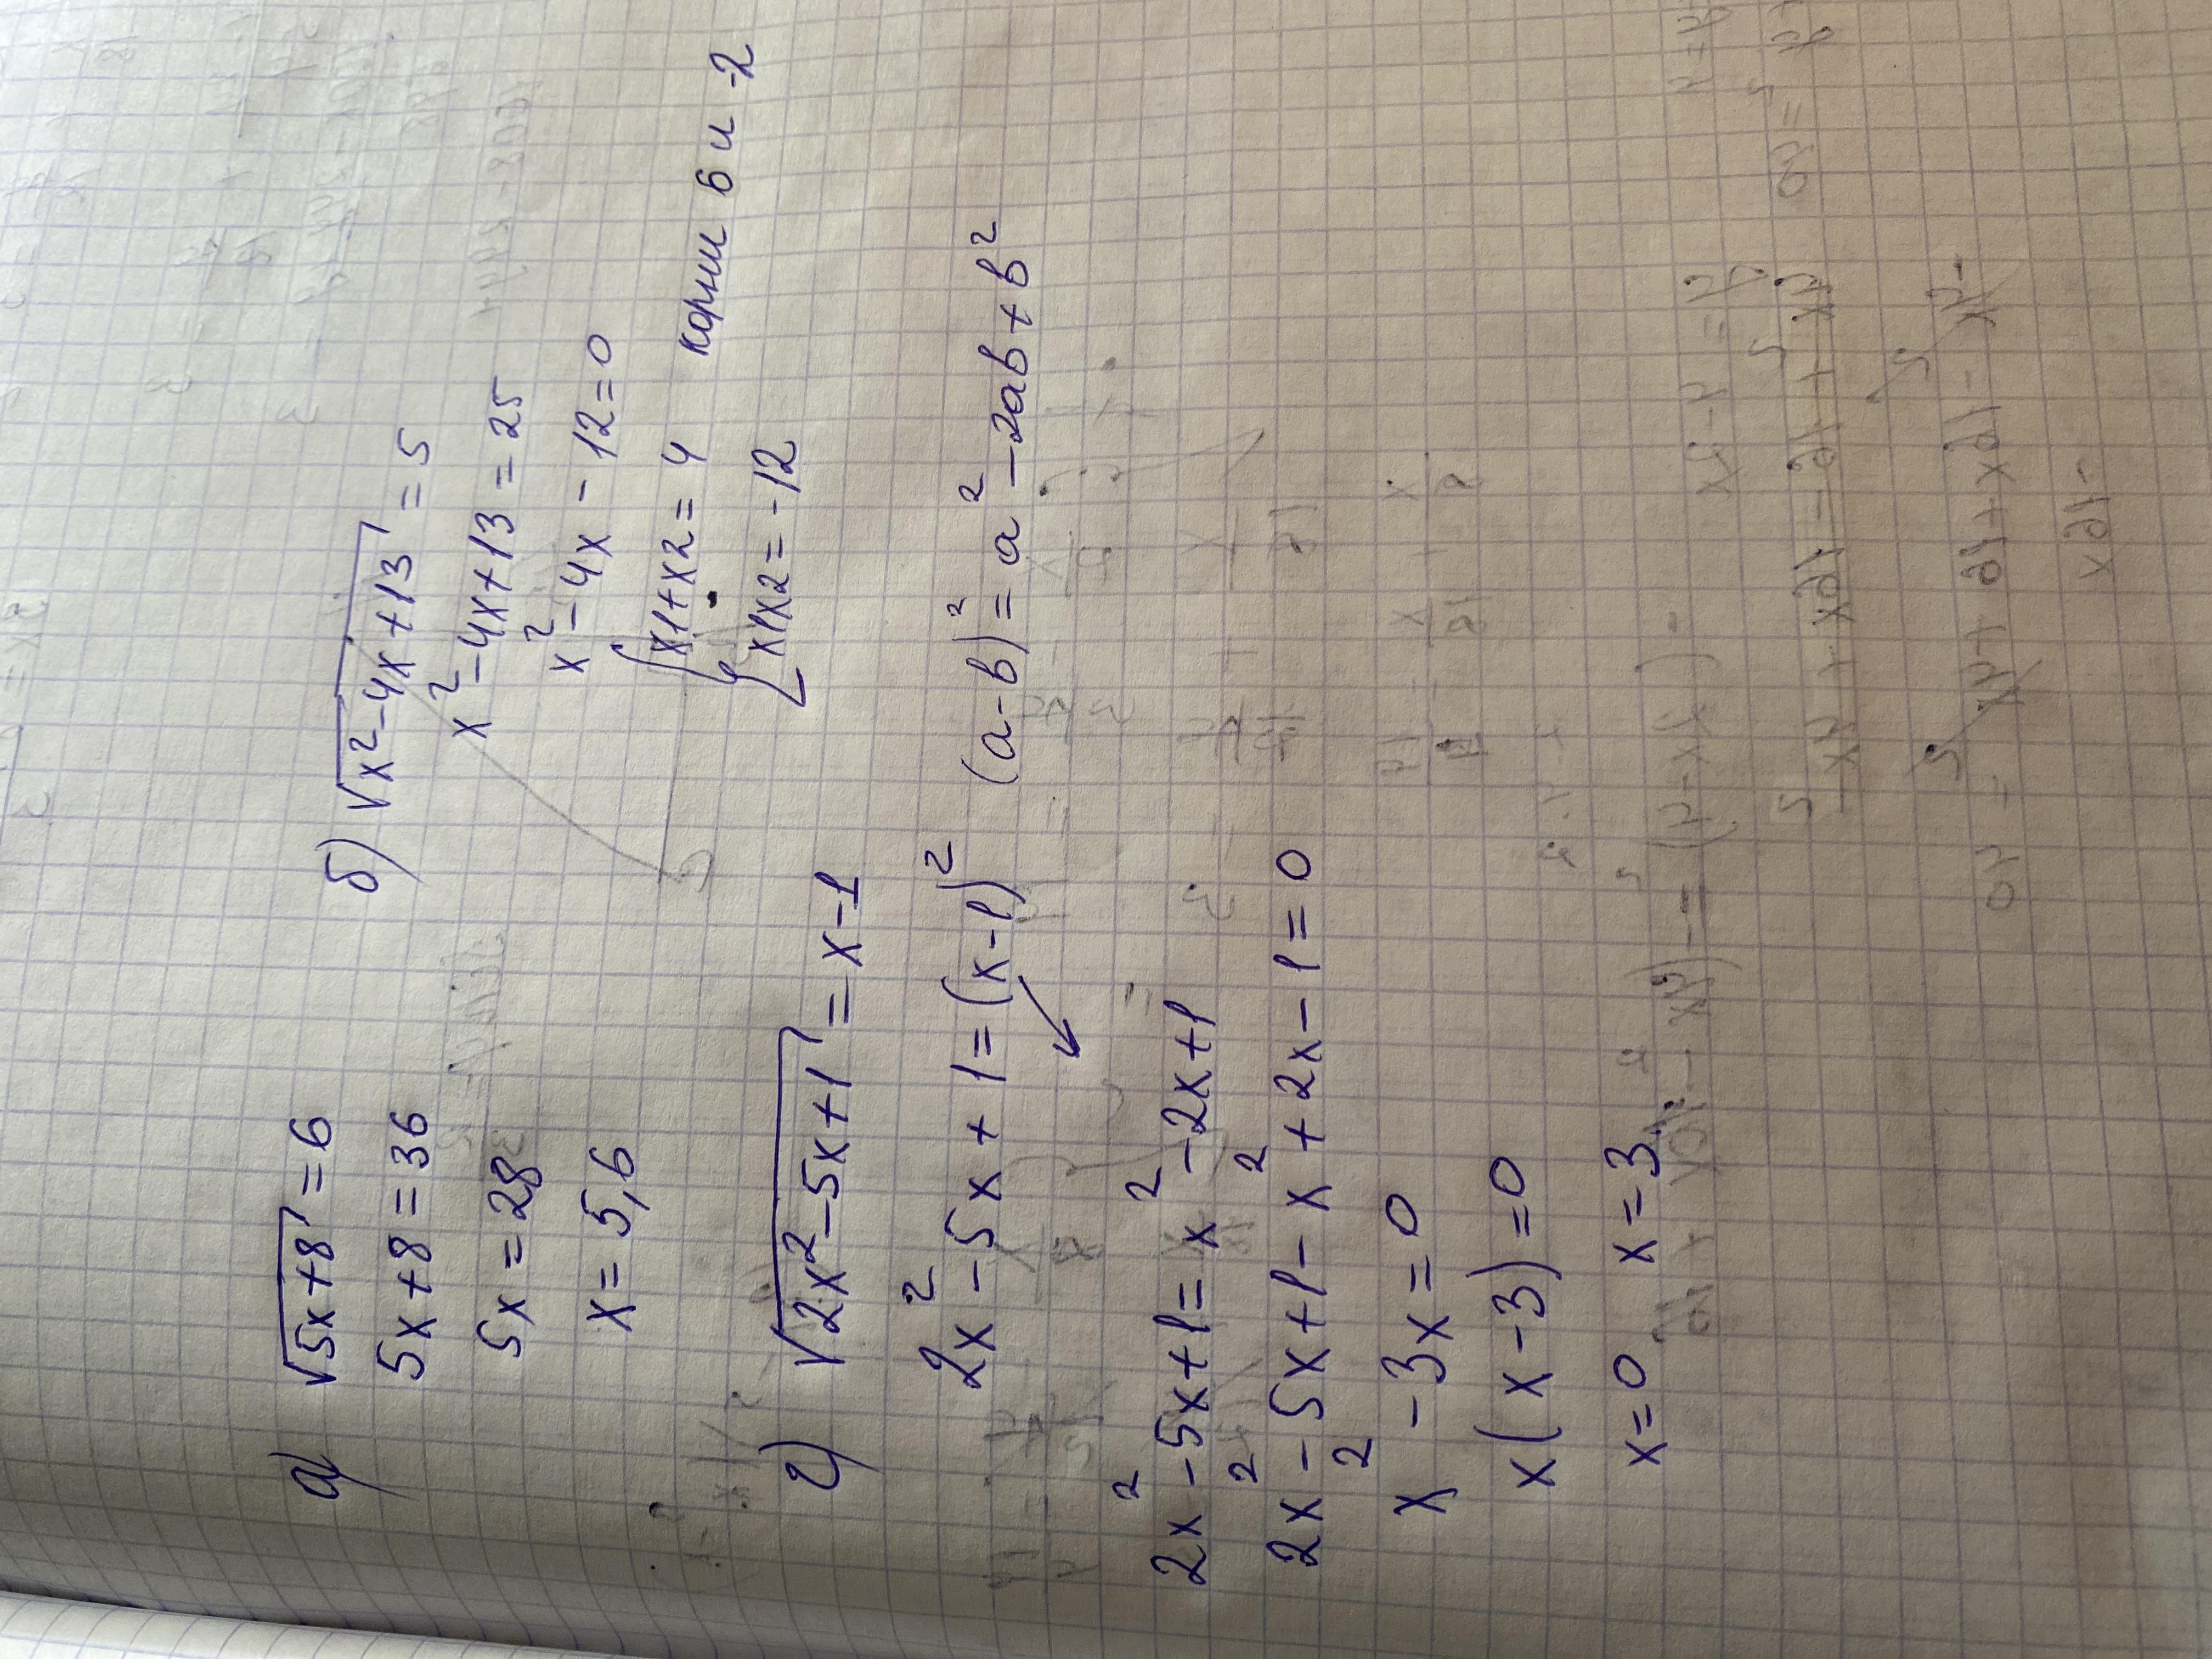 а) √5x+8 = 6
5x+8=36
5x=28
x=5,6
б) √x²-4x+13 = 5
x²-4x+13=25
x²-4x-12=0
{x1+x2=4
x1x2=-12
корни 6 и -2
г) √2x²-5x+1 = x-1
2x²-5x+1=(x-1)²
(a-b)²=a²-2ab+b²
2x²-5x+1=x²-2x+1
2x²-5x+1-x²+2x-1=0
x²-3x=0
x(x-3)=0
x=0 x=3